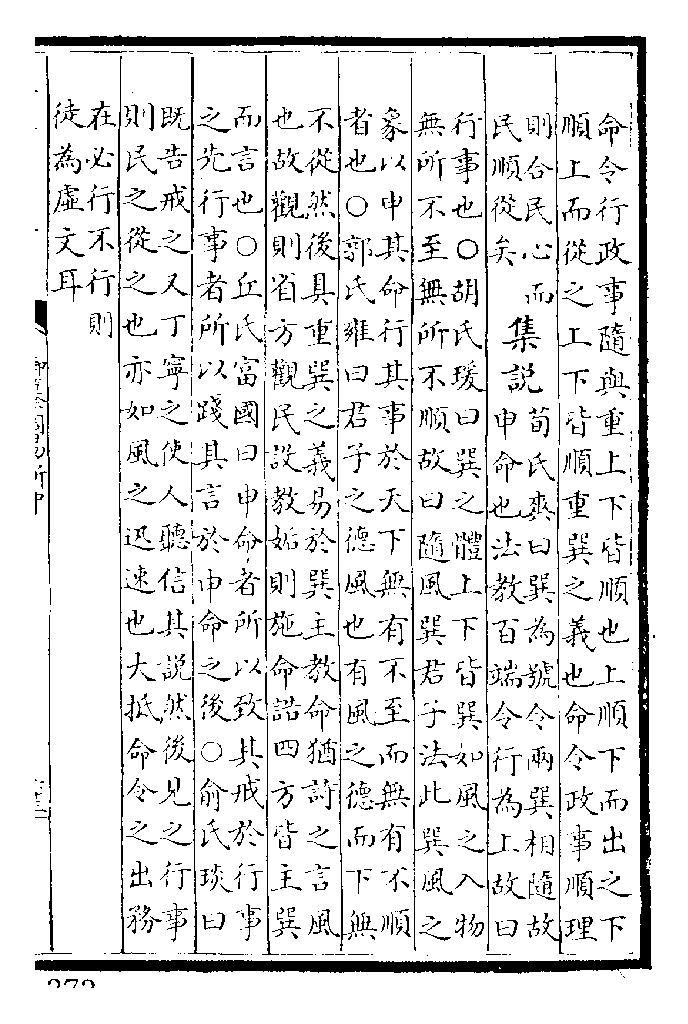 命令行政事隨與重上下皆順也上順下而出之下
順上而從之上下皆順重巽之義也命令政事順理
則合民心而
民順從矣
集說
荀氏爽曰巽為號令兩巽相隨故
申命也法教百端令行為上故曰
行事也○胡氏瑗曰巽之體上下皆巽如風之入物
無所不至無所不順故曰隨風巽君子法此巽風之
象以申其命行其事於天下無有不至而無有不順
者也○郭氏雍曰君子之德風也有風之德而下無
不從然後具重巽之義易於巽主教命猶詩之言風
也故觀則省方觀民設教姤則施命誥四方皆主巽
而言也○丘氏富國曰申命者所以致其戒於行事
之先行事者所以踐其言於申命之後○俞氏琰曰
既告戒之又丁寧之使人聽信其說然後見之行事
則民之從之也亦如風之迅速也大抵命令之出務
在必行不行則
徒為虛文耳